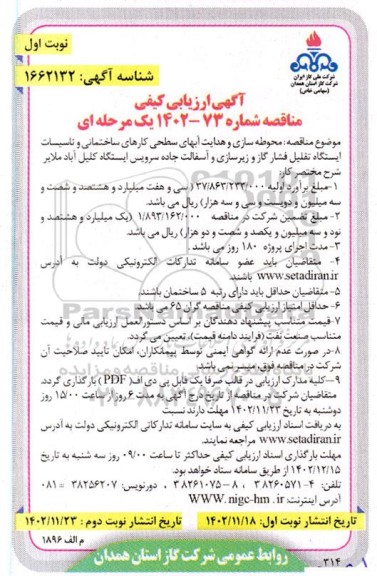 نوبت اول
شرکت ملی گاز ایران
شرکت گاز استان همدان
(سهامی خاص)
شناسه آگهی: ۱۶۶۲۱۳۲
آگهی ارزیابی کیفی
مناقصه شماره ۷۳ -۱۴۰۲ یک مرحله ای
موضوع مناقصه: محوطه سازی و هدایت آبهای سطحی کارهای ساختمانی و تاسیسات
ایستگاه تقلیل فشار گاز و زیرسازی و آسفالت جاده سرویس ایستگاه کلیل آباد ملایر
شرح مختصر کار:
۱-مبلغ برآورد اولیه ۳۷/۸۶۳/۲۳۳/۰۰۰ (سی و هفت میلیارد و هشتصد و شصت و
سه میلیون و دویست و سی و سه هزار) ریال می باشد.
۲- مبلغ تضمین شرکت در مناقصه ۱/۸۹۳/۱۶۲/۰۰۰ (یک میلیارد و هشتصد و
نود و سه میلیون و یکصد و شصت و دو هزار) ریال می باشد.
۳- مدت اجرای پروژه ۱۸۰ روز می باشد.
۴- متقاضیان باید عضو سامانه تدارکات الکترونیکی دولت به آدرس
www.setadiran.ir باشند.
۵- متقاضیان حداقل باید دارای رتبه ۵ ساختمان باشند.
۶- حداقل امتیاز ارزیابی کیفی مناقصه گران ۶۵ می باشد.
۷-قیمت متناسب پیشنهاد دهندگان بر اساس دستورالعمل ارزیابی مالی و قیمت
متناسب صنعت نفت (فرایند دامنه قیمت)، تعیین می گردد.
۸-در صورت عدم ارائه گواهی ایمنی توسط پیمانکاران، امکان تایید صلاحیت آن
شرکت در مناقصه فوق، میسر نمی باشد.
۹-کلیه مدارک ارزیابی در قالب صرفا یک فایل پی دی اف( PDF ) بارگذاری گردد.
متقاضیان شرکت در مناقصه از تاریخ درج آگهی به مدت ۶ روز از ساعت ۱۵/۰۰ روز
دوشنبه به تاریخ ۱۴۰۲/۱۱/۲۳ مهلت دارند نسبت
به دریافت اسناد ارزیابی کیفی به سایت سامانه تدارکاتی الکترونیکی دولت به آدرس
www.setadiran.ir مراجعه نمایند.
مهلت بارگذاری اسناد ارزیابی کیفی حداکثر تا ساعت ۰۹/۰۰ روز سه شنبه به تاریخ
۱۴۰۲/۱۲/۱۵ از طریق سامانه ستاد خواهد بود.
تلفن: ۴- ۳۸۲۶۰۵۷۱ ، ۸- ۳۸۲۶۱۰۷۵ ، دورنویس: ۳۸۲۵۶۲۰۷ - ۰۸۱
آدرس اینترنت: WWW. nigc-hm . ir
تاریخ انتشار نوبت اول: ۱۴۰۲/۱۱/۱۸
تاریخ انتشار نوبت دوم : ۱۴۰۲/۱۱/۲۳
م الف ۱۸۹۶
روابط عمومی شرکت گاز استان همدان
۳۱۴